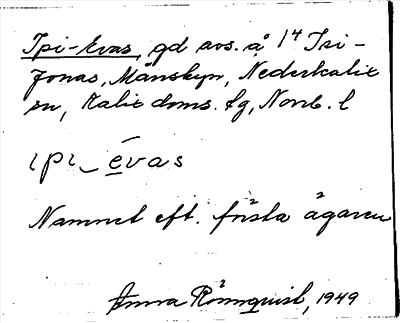 Ipi-Evas, gd avs. å 1⁴ Isi-
fonas, Månsbyn, Nederkalix
sn, Kalix doms. tg, Norrb. l
ipi_évas
Namnet eft. första ägaren
Anna Rönnquist, 1949